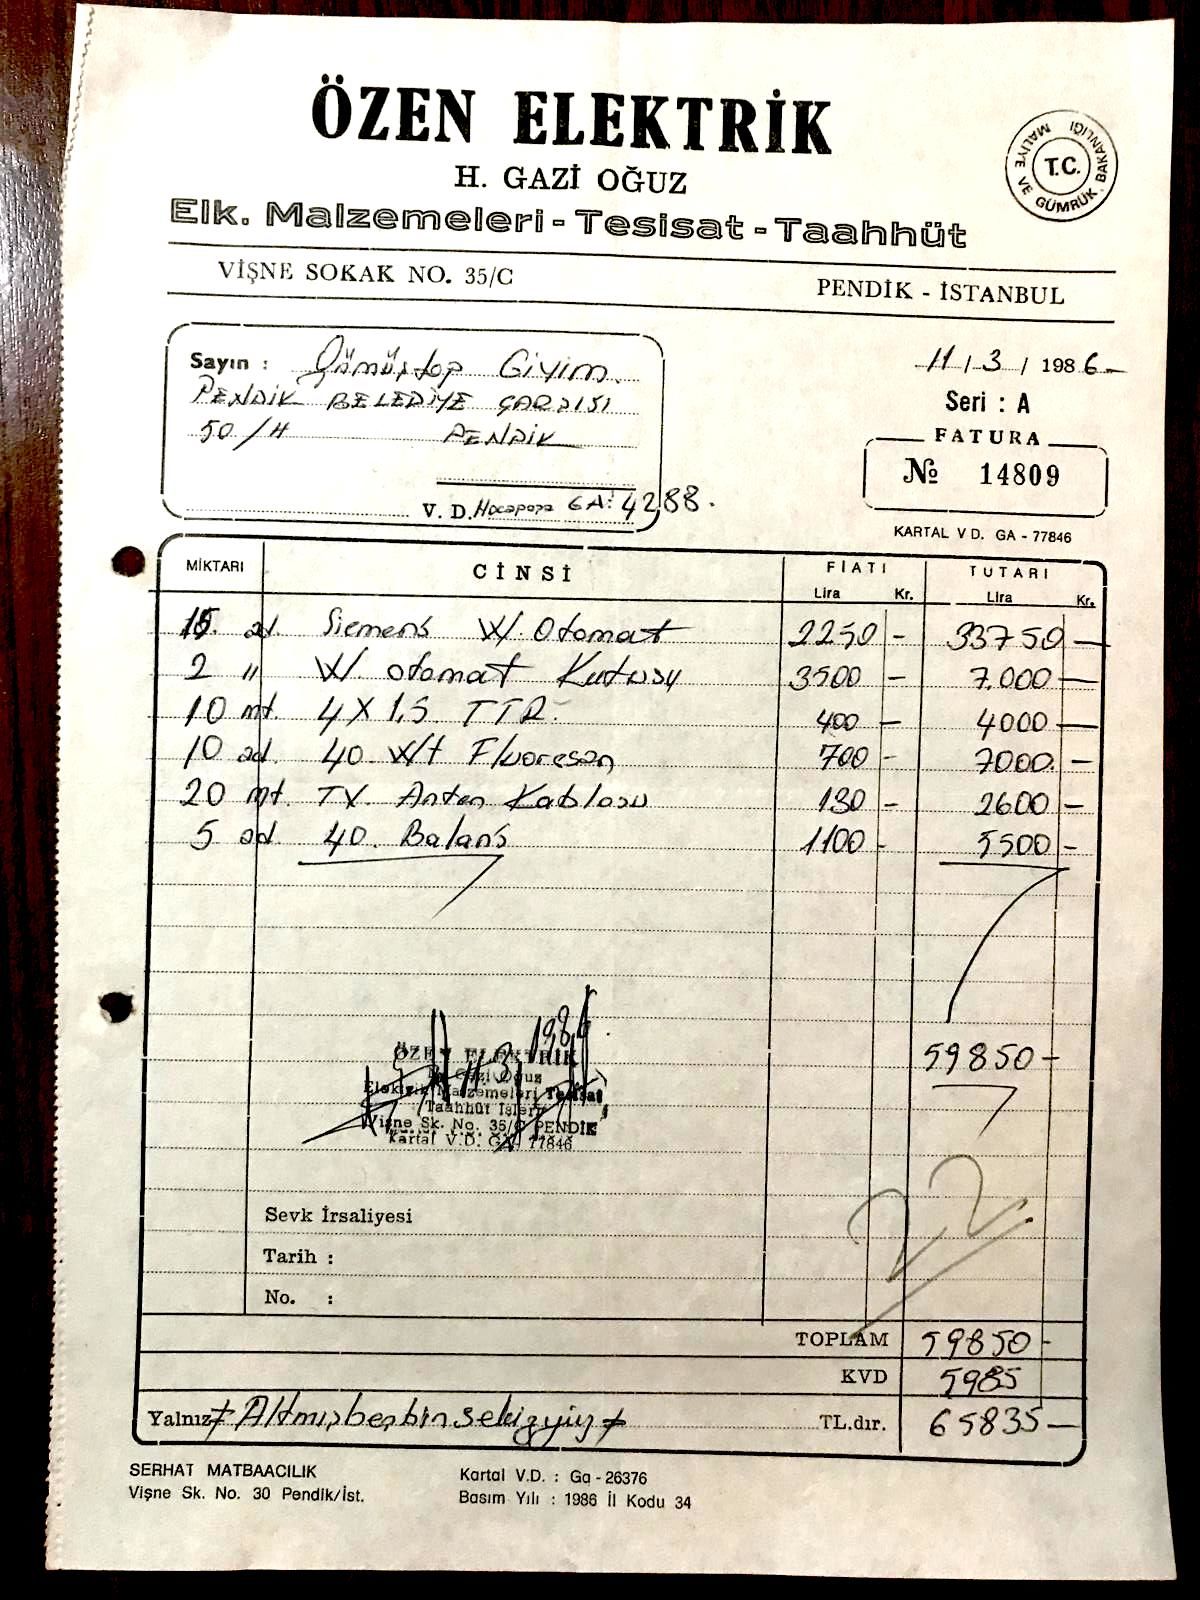 ÖZEN ELEKTRİK
H. GAZİ OĞUZ
Elk. Malzemeleri - Tesisat - Taahhüt
VİŞNE SOKAK NO. 35/C PENDİK - İSTANBUL
T.C. MALİYE VE GÜMRÜK BAKANLIĞI
Sayın : Gömüştop Giyim.
PENDİK BELEDİYE ÇARŞISI
50/H PENDİK
V. D. Hocapaşa GA: 4288.
11 / 3 / 1986-
Seri : A
FATURA
№ 14809
KARTAL V D. GA - 77846
MİKTARI CİNSİ FİATI TUTARI
Lira Kr. Lira Kr.
15 ad. Siemens W. Otomat 2250 - 33750 -
2 " W. otomat Kutusu 3500 - 7.000 -
10 mt. 4 X 1,5 TTR. 400 - 4000 -
10 ad. 40 W/t Fluoresan 700 - 7000. -
20 mt. TV. Anten Kablosu 130 - 2600 -
5 ad. 40. Balans 1100 - 5500 -
59850 -
ÖZEN ELEKTRİK
H. Gazi Oğuz
Elektrik Malzemeleri Tesisat
Taahhüt İşleri
Vişne Sk. No. 35/C PENDİK
Kartal V.D. GA. 77846
11.3.1986.
22
Sevk İrsaliyesi
Tarih :
No. :
TOPLAM 59850 -
KVD 5985
Yalnız Altmışbeşbinsekizyüz TL.dır. 65835 -
SERHAT MATBAACILIK
Vişne Sk. No. 30 Pendik/İst.
Kartal V.D. : Ga - 26376
Basım Yılı : 1986 İl Kodu 34